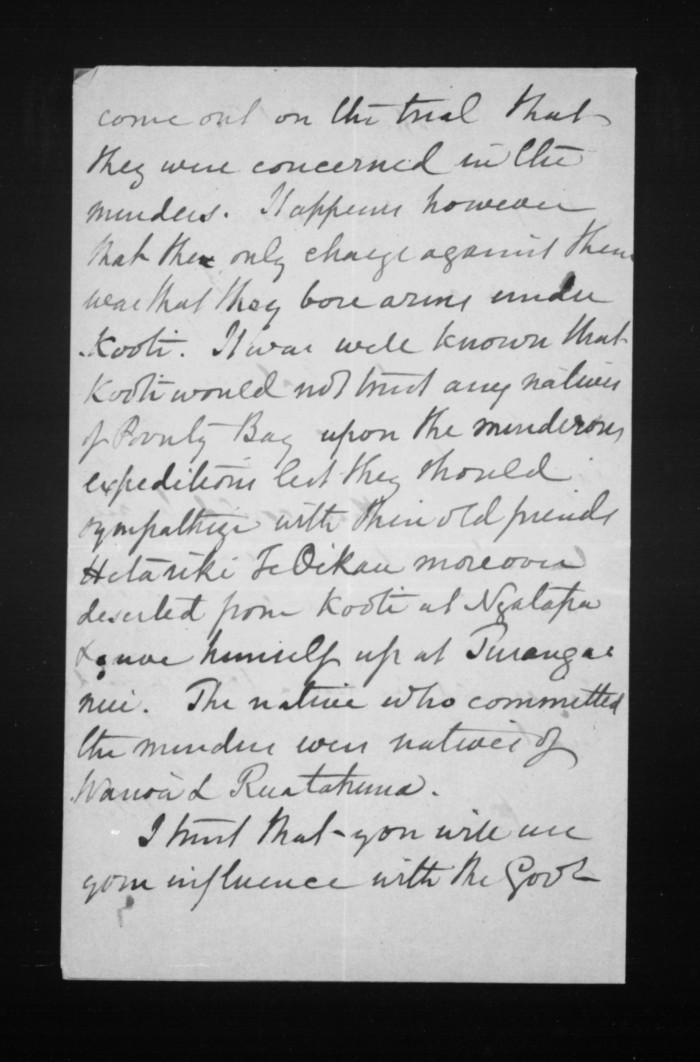 come out on the trial that
they were concerned in the
murders. It appears however
that the only charge against them
was that they bore arms under
Kooti. It was well known that
Kooti would not trust any natives
of Poverty Bay upon the murderous
expeditions lest they should
sympathize with their old friends
Hetariki Te Oikau moreover
deserted from Kooti at Ngatapa
& gave himself up at Turanga
nui. The native who committed
the murders were natives of
Wairoa & Ruatahuna.
I trust that you will use
your influence with the Govt